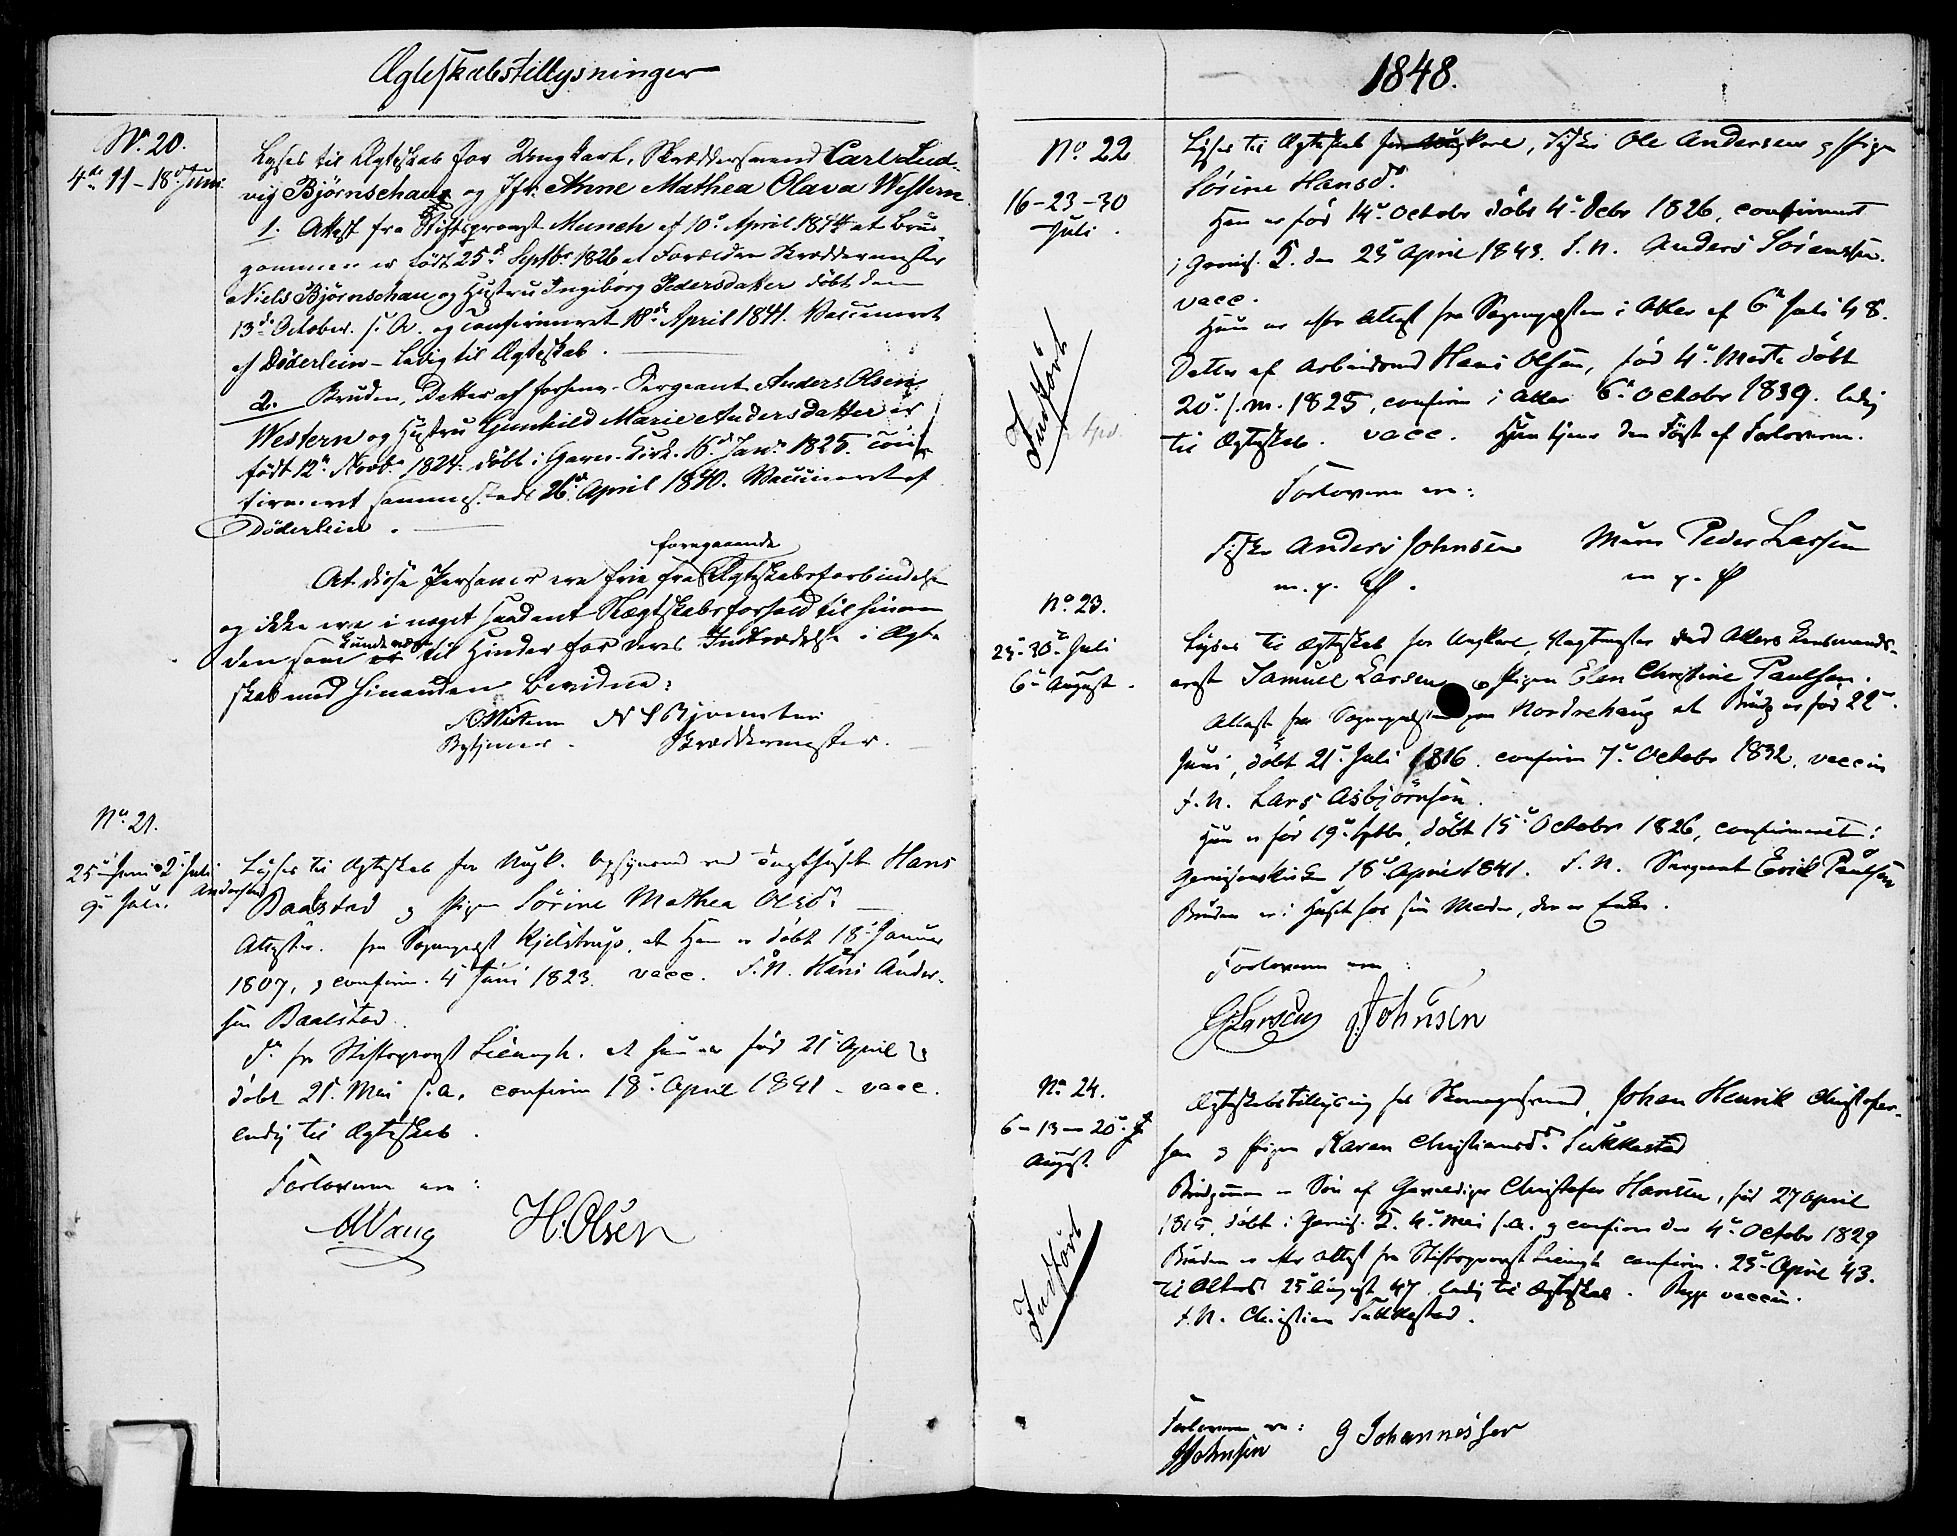 Ægteskabstillysninger
No. 20.
4de 11 - 18 Juni
Lyses til Ægteskab for Ungkarl, Skræddersvend Carl Lud-
vig Bjørnschau og Jfr. Anne Mathea Olava Western
1. Attest fra Stiftsprovst Munch af 10de April 1844 at Brud-
gommen er født 25de Septbr 1826 af Forældre Skræddermester
Niels Bjørnschau og Hustru Ingeborg Pedersdatter døbt den
13de October s. A. og confirmeret 18de April 1841. Vaccineret
af Døderlein - Ledig til Ægteskab.
2. Bruden, Datter af forhenv. Sergeant Anders Olsen
Western og Hustru Gunhild Marie Andersdatter er
født 12te Novbr 1824. døbt i Garn. Kirk. 16de Janr 1825. Con-
firmeret sammesteds 26de April 1840. Vaccineret af
Døderlein.
foregaaende
At disse Personer ere frie fra Ægteskabsforbindelse
og ikke ere i noget saadant Slægtskabsforhold til hinan
kunde være
den som er til Hinder for deres Indtrædelse i Ægte
skab med hinanden bevidne:
A Western N S Bjørnschau
Skræddermester.
No 21.
25 Juni 2 Juli
9 Juli.
Lyses til Ægteskab for Ungk. Opsynsmd ved Tugthuset Hans
Andersen
Baalstad og Pigen Sørine Mathea Olsdr
Attester. fra Sognepræst Kjelstrup, at Han er døbt 18 Januar
1807, og confirm. 4 Juni 1823. vacc. F.N. Hans Ander-
sen Baalstad.
do fra Stiftsprovst at hun er fød 21 April
døbt 21 Mai s.a. confirm 18 April 1841 - vacc.
ledig til Ægteskab.
Forloverne ere:
A. Wang H. Olsen
1848.
No 22
16-23-30
Juli.
Indført
Lyses til Ægteskab for Ungkarl, Fisker Ole Andersen og Pige
Sørine Hansdr
Han er fød 14 Octobr døbt 4 Debr 1826, confirmeret
i Garnis. K. den 23 April 1843. F.N. Anders Sørenssen.
vacc.
Hun er efter Attest fra Sognepræsten i Aker af 6te Juli 48.
Datter af Arbeidsmd Hans Olsen, fød 4 Marts døbt
20 s.m. 1825, confirm i Aker 6te Octobr 1839. ledig
til Ægteskab. vacc. Hun tjener den Først af Forloverne.
Forloverne ere:
Fisker Anders Johnsen Murer Peder Larsen
m. p. P. m. p. P
No 23.
23-30 Juli
6te August.
Lyses til Ægteskab for Ungkarl, Vagtmester ved Akers Lensmands-
arrest Samuel Larsen og Pigen Elen Christine Paulsen.
Attest fra Sognepræsten paa Nordrehaug at Brudg er fød 22
Juni, døbt 21 Juli 1816. confirm 7 Octobr 1832. vaccin
F.N. Lars Asbjørnsen.
Hun er fød 19 Septbr, døbt 15 Octobr 1826, confirmeret i
Garnisonskirken 18 April 1841. F.N. Sergeant Erik Paulsen
Bruden er i Huset hos sin Moder, der er Enke.
Forloverne ere:
G. Larsen J. Johnsen
No. 24.
6-13-20
August
Indført
Ægteskabstillysing for Skomagersvend, Johan Henrik Christofer-
sen og Pigen Karen Christiansdr Fukkestad
Brudgommen er Søn af Gevaldiger Christofer Hansen, fød 27 April
1815, døbt i Garnis. K. 4 Mai s.a. og confirm den 4 Octobr 1829
Bruden er efter Attest fra Stiftsprovst confirm. 23 April 43.
til Alters 25 August 47 ledig til Ægteskab. Begge vaccin.
F.N. Christian Fukkestad.
Forloverne ere:
J Johnsen G Johannessen